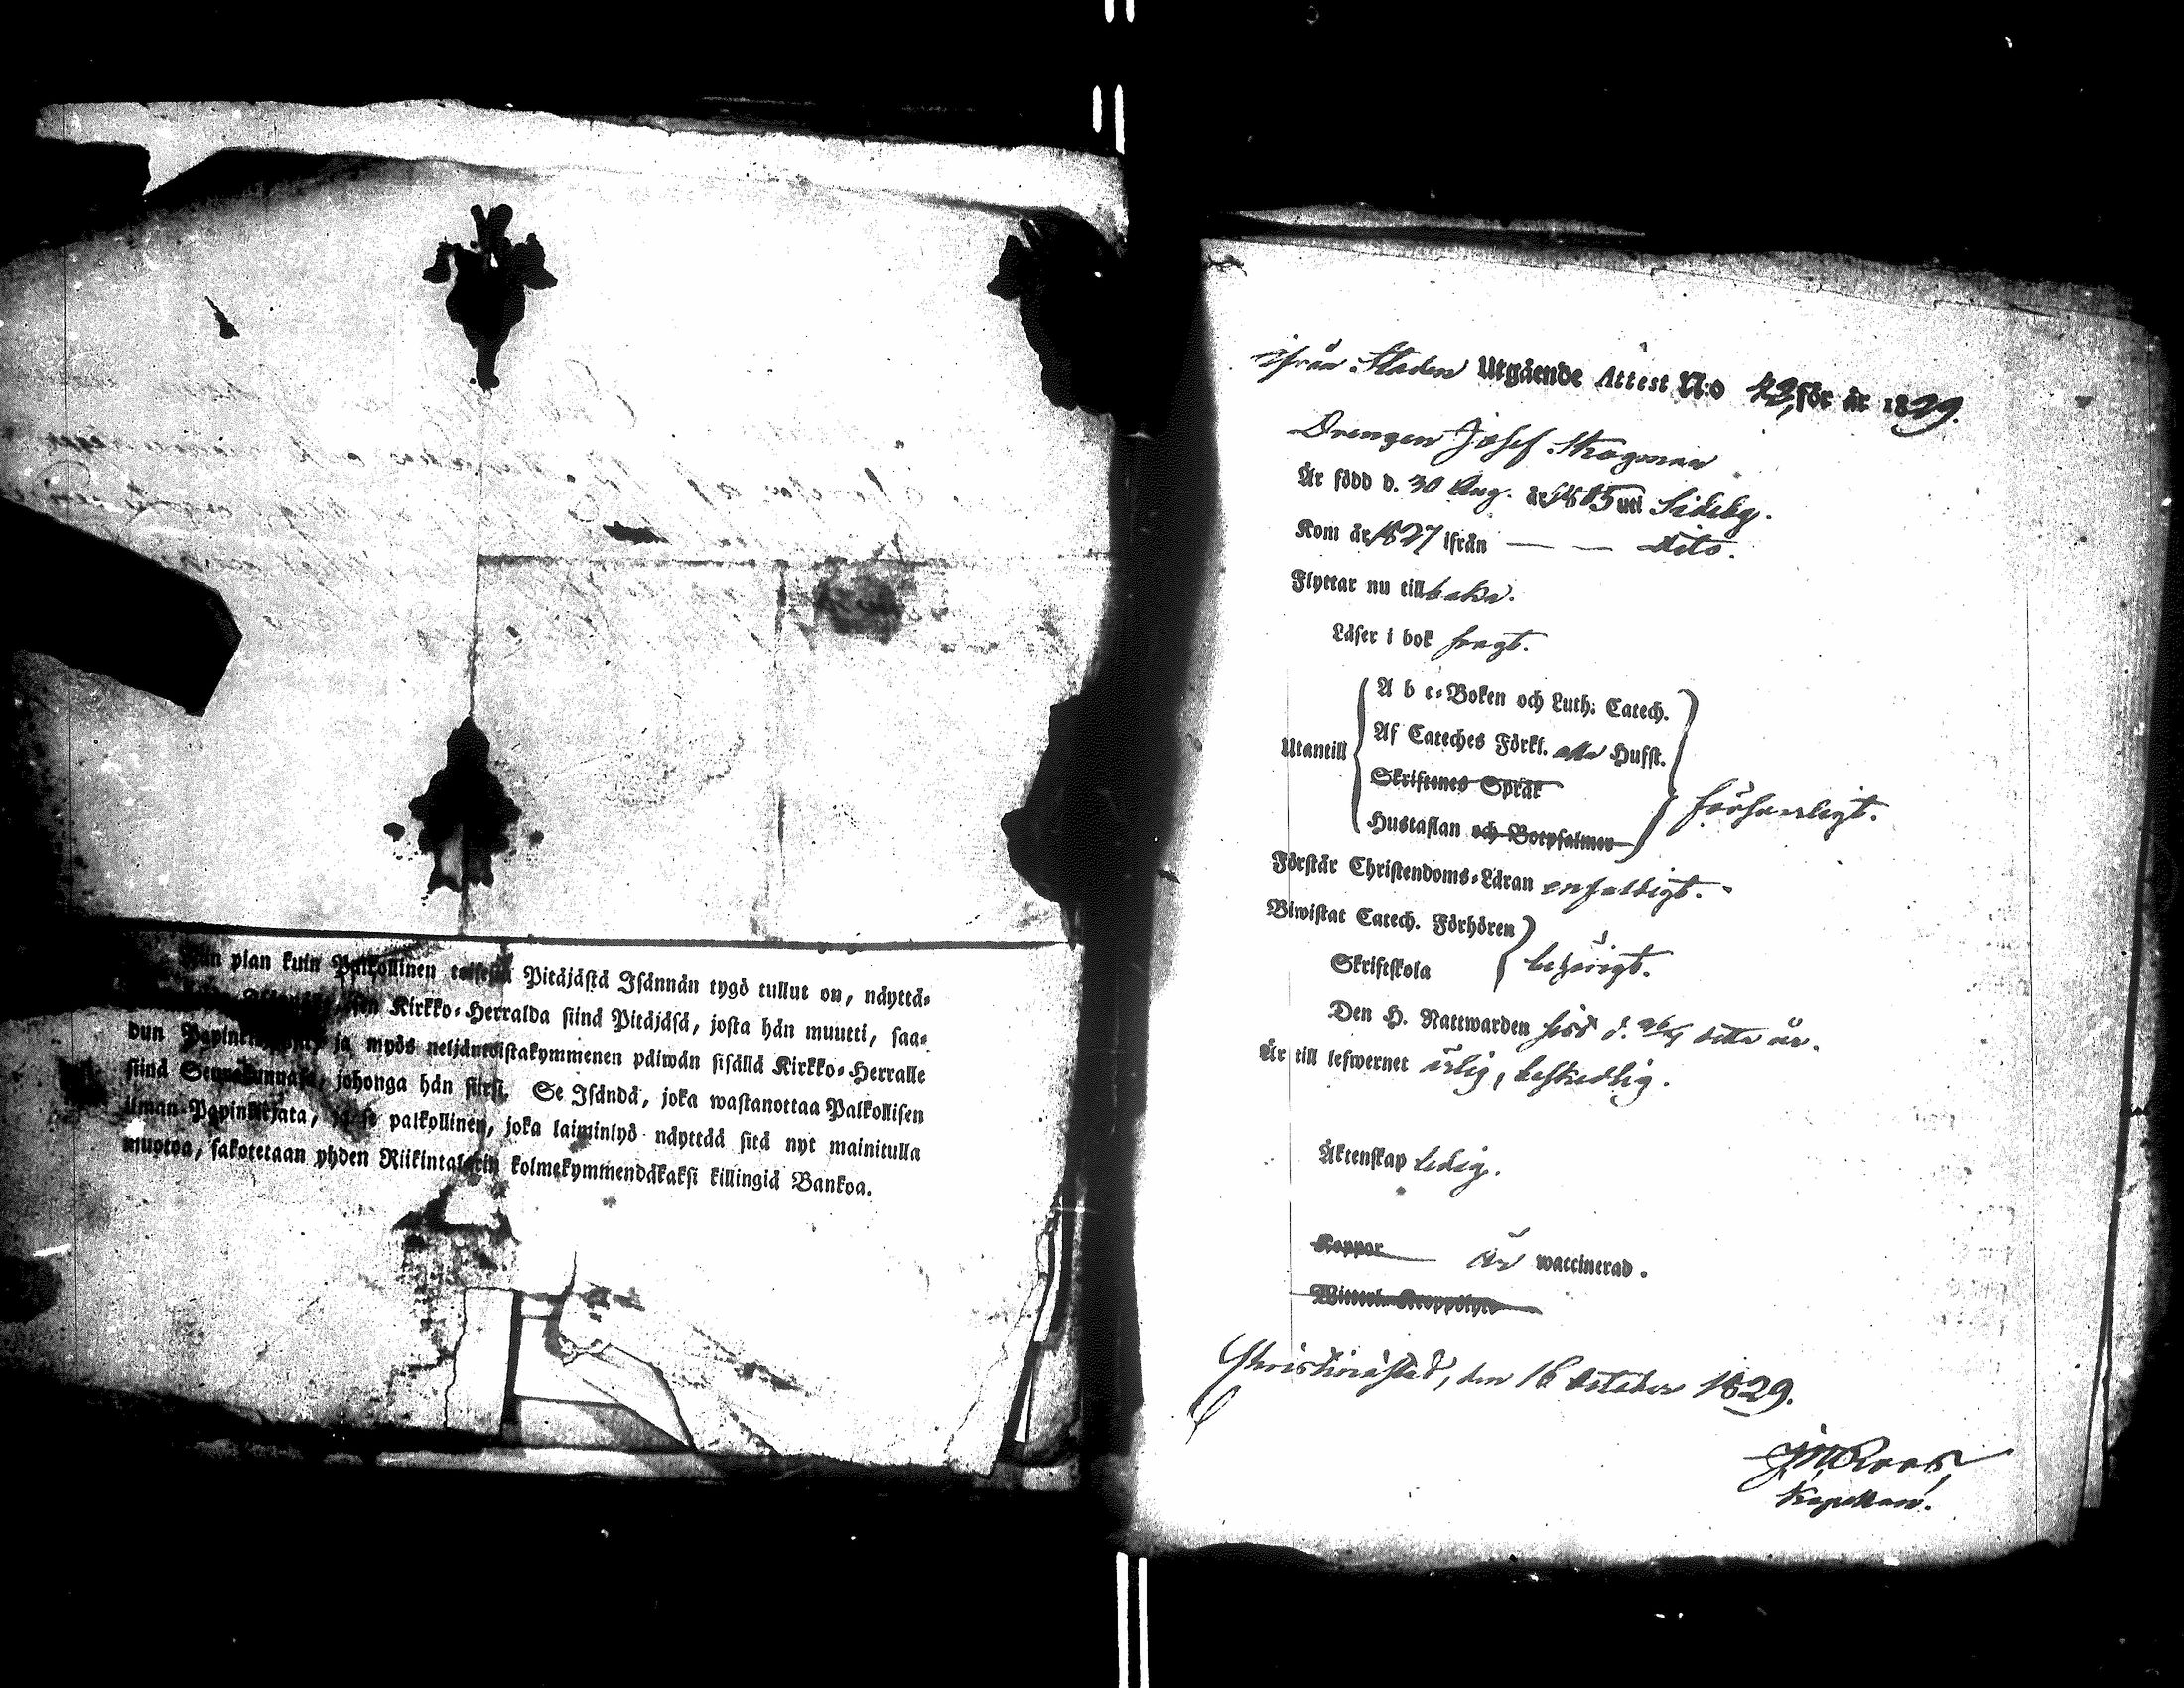 plan kuin Palkollinen Pitäjästä Isännän tygö tullut on, näyttä-
Kirkko-Herralda siinä Pitäjäsä, josta hän muutti, saa-
dun ja myös neljäntoistakymmenen päiwän sisällä Kirkko-Herralle
siinä johonga hän siirsi. Se Isändä, joka wastanottaa Palkollisen
ilman Papinkirjata, ja se palkollinen, joka laiminlyö näyttää sitä nyt mainitulla
muotoa, sakotetaan yhden Riikintalerin kolmekymmendäkaksi killingiä Bankoa.
ifrån Staden Utgående Attest N:o 42, för år 1829.
Drengen Josef Skogman
Är född d. 30 Aug. år 1805 uti Sideby.
Kom år 1827 ifrån — — dito.
Flyttar nu till baka.
Läser i bok svagt.
Utantill
A b c-Boken och Luth: Catech.
Af Cateches Förkl. alla Hufst.
Skriftenes Språk
Hustaflan och Botpsalmer
försvarligt.
Förstår Christendoms-Läran enfaldigt.
Biwistat Catech. Förhören
Skriftskola
behörigt.
Den H. Nattwarden sist d. detta år.
Är till lefwernet ärlig, beskedlig.
Äktenskap ledig.
Koppor är waccinerad.
Wittert. Kroppslyte
Christinæstad, den 16 October 1829.
Kapellan.